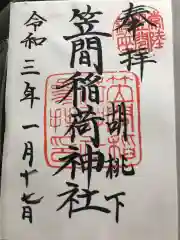 奉拝
胡桃下
笠間稲荷神社
令和三年一月十七日